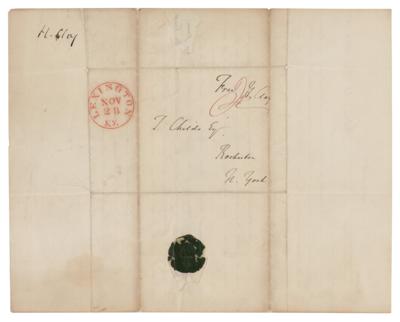 H. Clay
LEXINGTON
NOV
28
KY.
Free H. Clay
T. Childs Esq.
Rochester
N. York